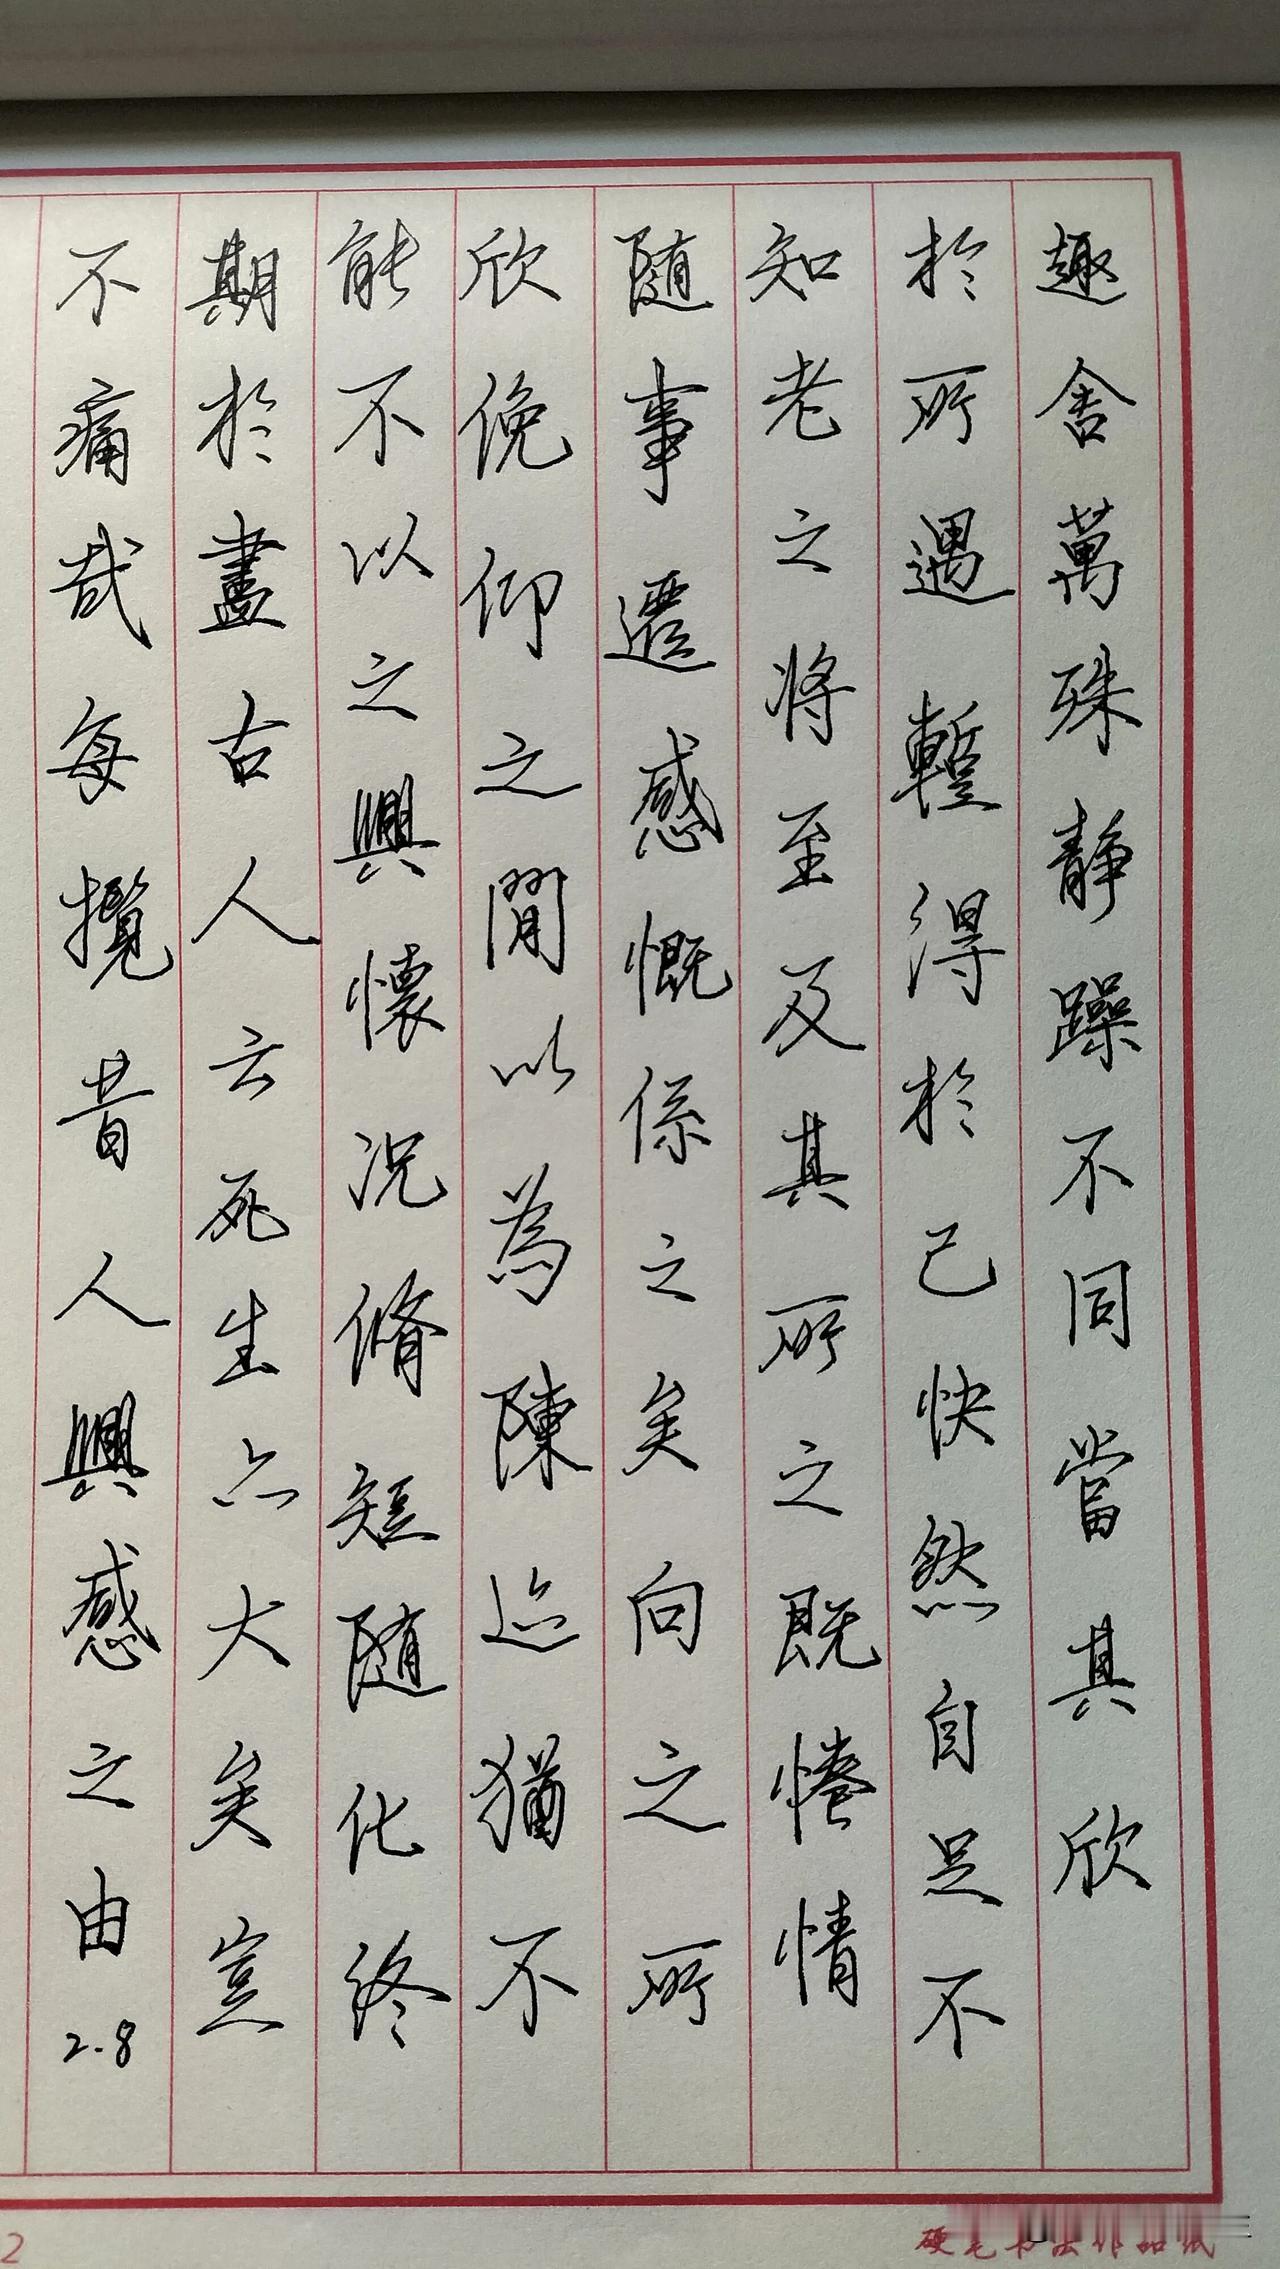 趣舍萬殊静躁不同當其欣
於所遇蹔得於己快然自足不
知老之将至及其所之既惓情
随事遷感慨係之矣向之所
欣俛仰之閒以為陳迹猶不
能不以之興懷况脩短随化終
期於盡古人云死生亦大矣豈
不痛哉每攬昔人興感之由
2.8
2